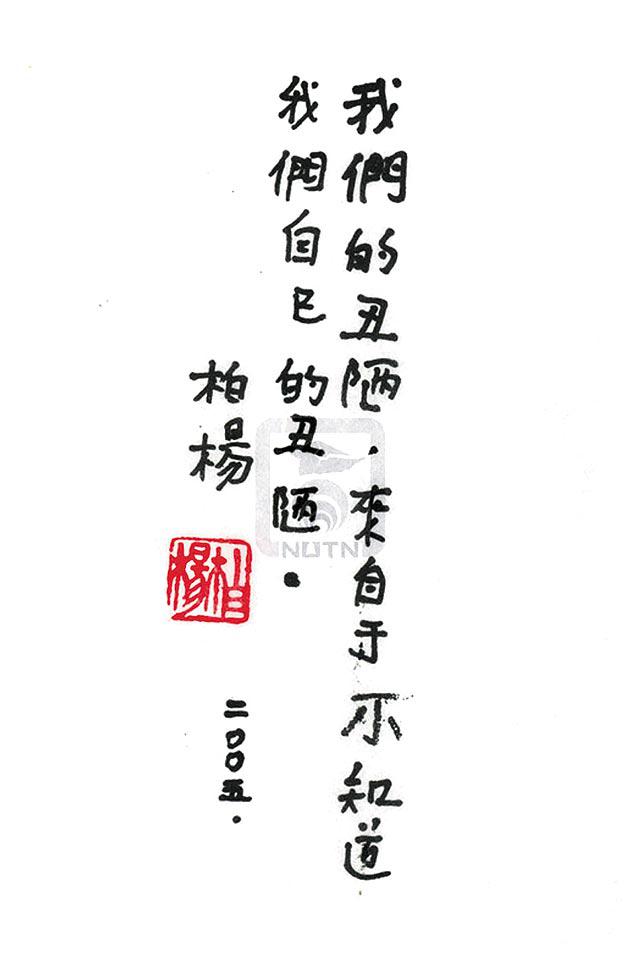 我們的丑陋，來自于不知道
我們自已的丑陋。
柏楊
柏楊
二〇〇五.
NUTN